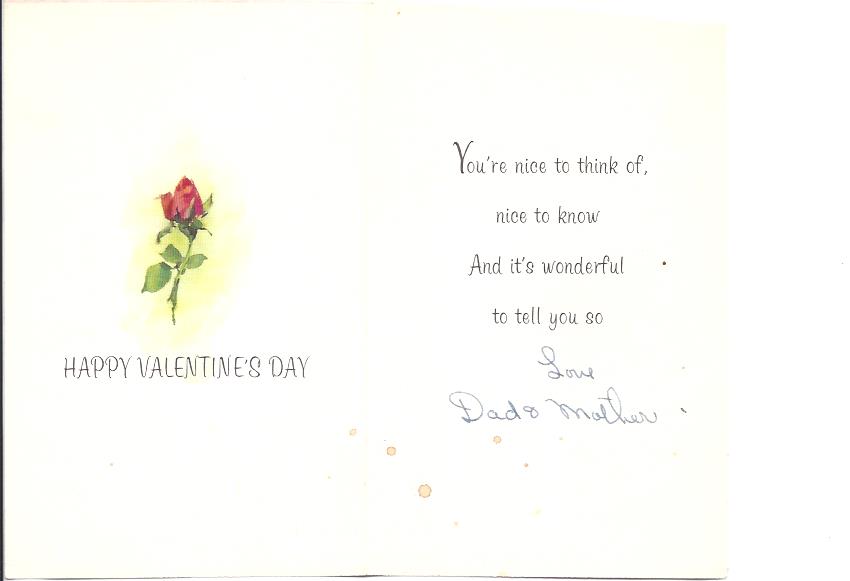 HAPPY VALENTINE'S DAY
You're nice to think of,
nice to know
And it's wonderful
to tell you so
Love
Dad & Mother